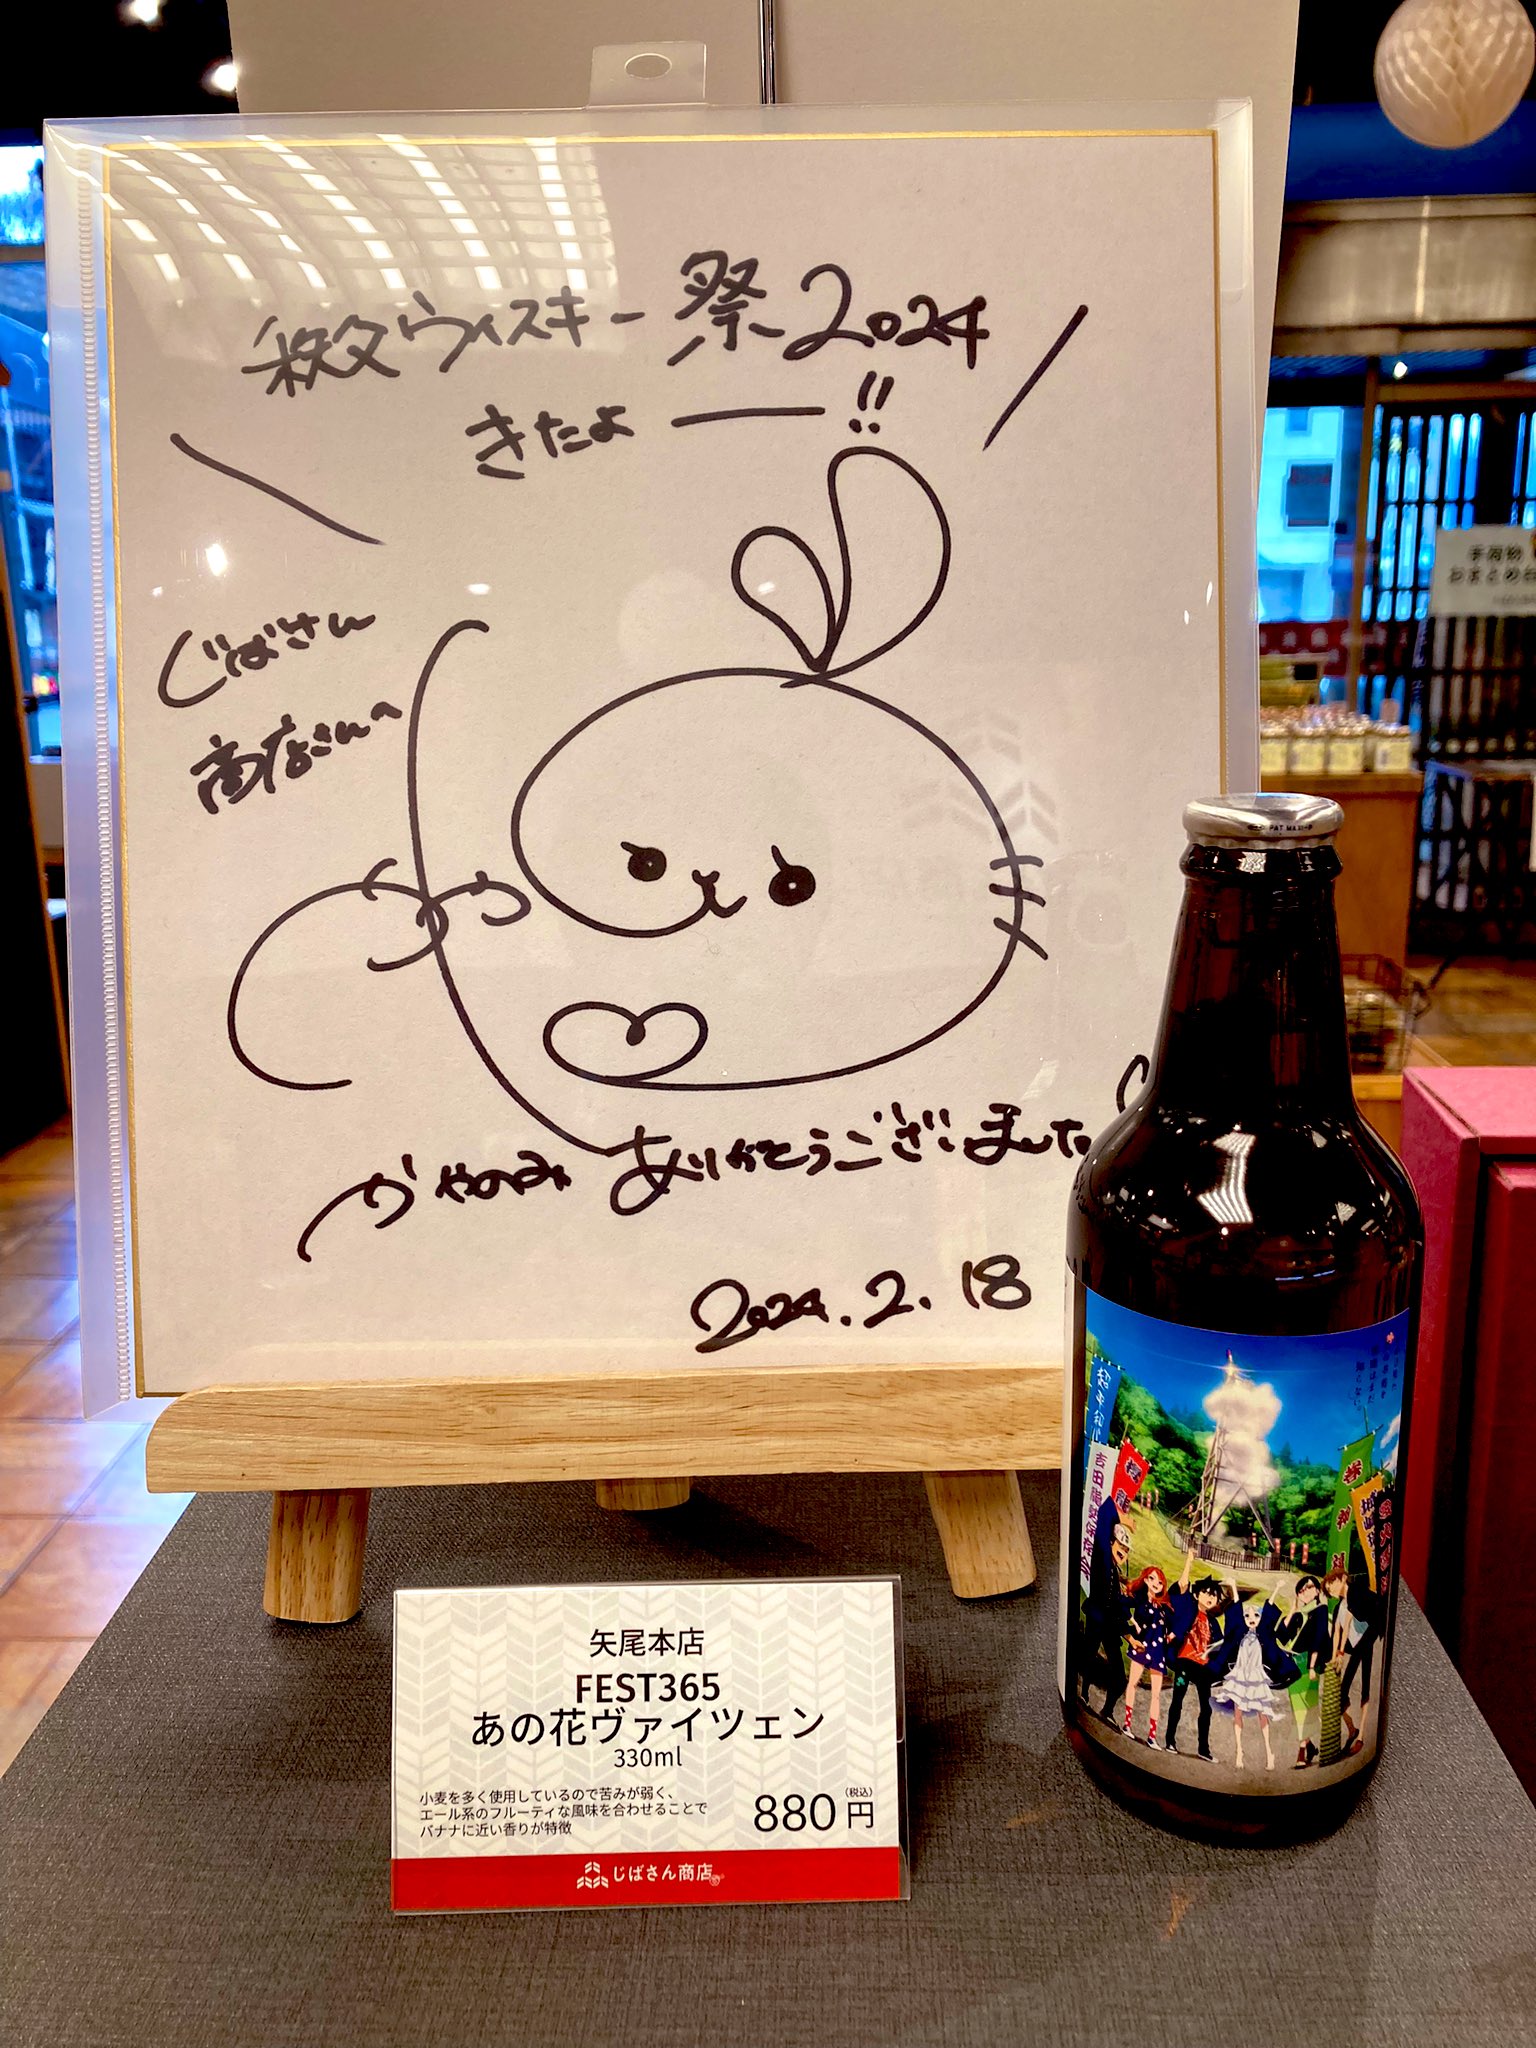 秩父ウィスキー祭2024
きたよー!!
じばさん
商店さんへ
かやのみ ありがとうございました
2024.2.18
手荷物
おまとめ
PAT
吉田龍勢保存会
矢尾本店
FEST365
あの花ヴァイツェン
330ml
小麦を多く使用しているので苦みが弱く、
エール系のフルーティな風味を合わせることで
バナナに近い香りが特徴
(税込)
880円
じばさん商店